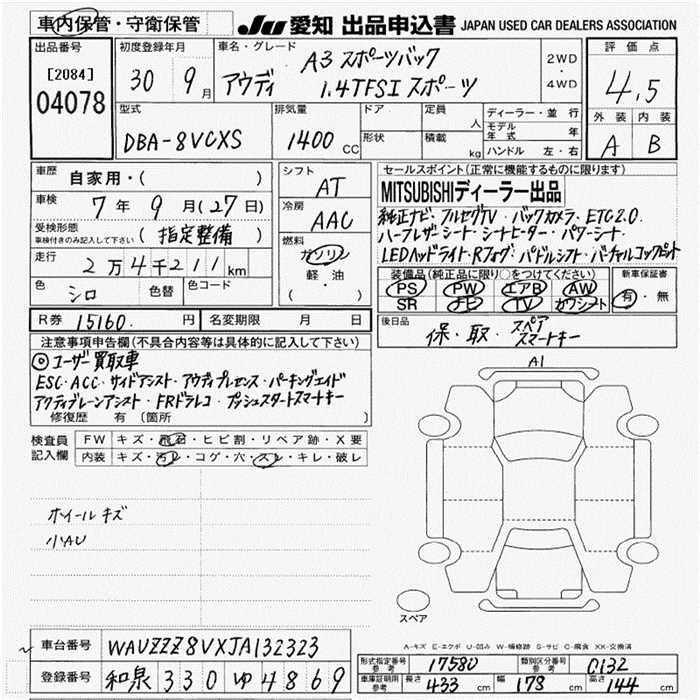 車内保管・守衛保管
JU 愛知 出品申込書 JAPAN USED CAR DEALERS ASSOCIATION
出品番号
[2084]
04078
初度登録年月
30 9月
車名・グレード
アウディ
A3 スポーツバック
1.4TFSI スポーツ
2WD
・
4WD
評価点
4.5
外装 内装
A B
型式
DBA-8VCXS
排気量
1400 CC
ドア
形状
定員 人
積載 kg
ディーラー・並行
モデル年式 年
ハンドル 左・右
車歴
自家用・( )
車検
7年 9月(27日)
受検形態
車検付きのみ記入して下さい
(指定整備)
走行
2万4千211km
色
シロ
色替
色コード
シフト
AT
冷房
AAC
燃料
ガソリン
軽・油
( )
セールスポイント(正常に機能するものに限ります)
MITSUBISHIディーラー出品
純正ナビ・フルセグTV・バックカメラ・ETC2.0・
ハーフレザーシート・シートヒーター・パワーシート・
LEDヘッドライト・Rフォグ・パドルシフト・バーチャルコックピット
装備品(純正品に限り○をつけてください)
PS PW エアB AW
SR ナビ TV カワシート
新車保証書
有・無
R券 15160. 円
名変期限 月 日
後日品
保・取・スペアスマートキー
注意事項申告欄(不具合内容等は具体的に記入して下さい)
◎ユーザー買取車
ESC・ACC・サイドアシスト・アウディプレセンス・パーキングエイド
アクティブレーンアシスト・FRドラレコ・プッシュスタートスマートキー
修復歴 有 〔箇所 〕
検査員記入欄
FW キズ・飛石・ヒビ割・リペア跡・X要
内装 キズ・汚レ・コゲ・穴・スレ・キレ・破レ
ホイールキズ
小AU
A1
スペア
A-キズ E-エクボ U-凹み W-補修跡 S-サビ C-腐食 XX-交換済
車台番号
WAUZZZ8VXJA132323
登録番号
和泉 330 ゆ 4869
形式指定番号
参考
17580
類別区分番号
参考
0132
車庫証明用
参考
長さ 433 cm 幅 178 cm 高さ 144 cm